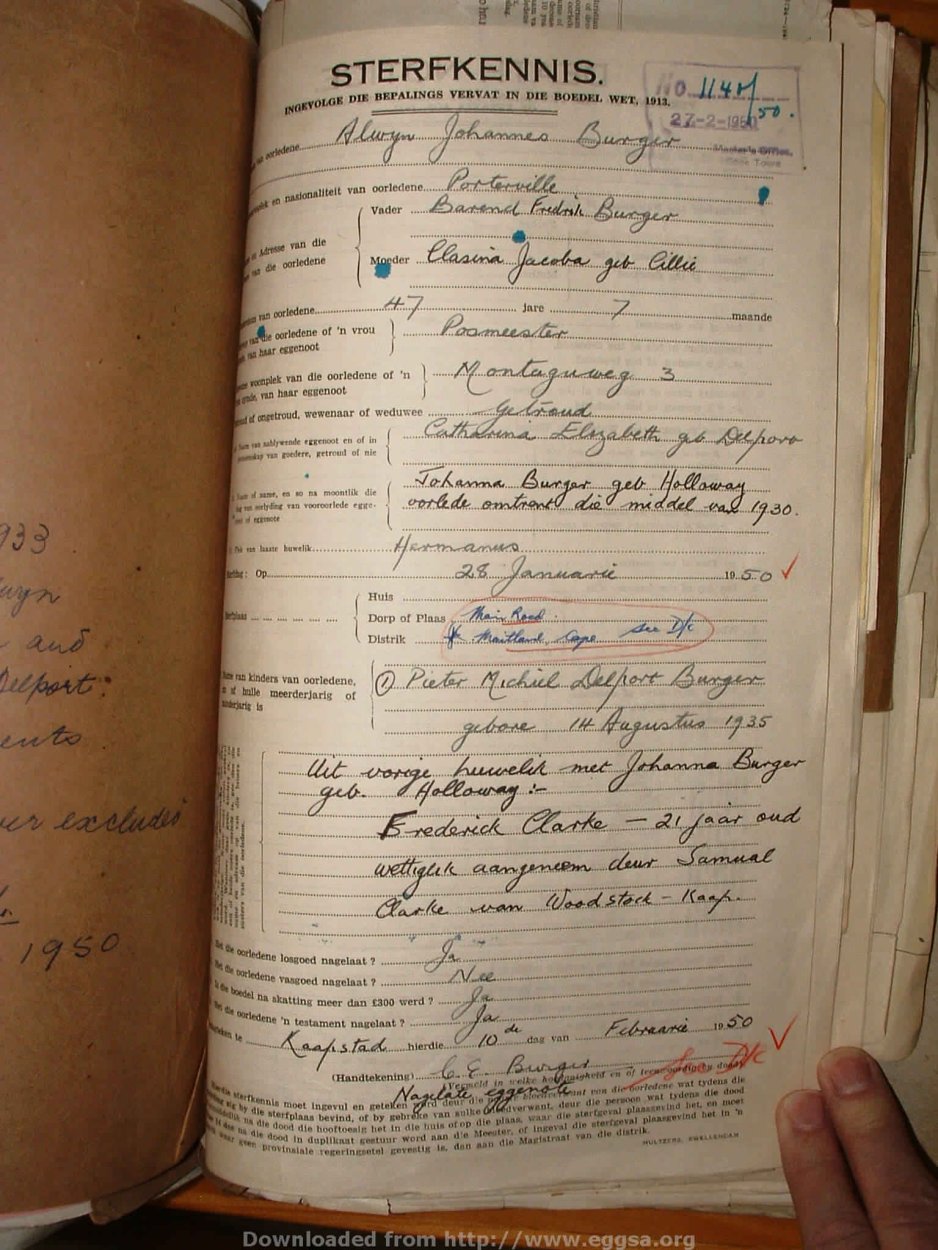 STERFKENNIS.
INGEVOLGE DIE BEPALINGS VERVAT IN DIE BOEDEL WET, 1913.
NO 1140/50.
27-2-1950
Master's Office,
Cape Town
van oorledene Alwyn Johannes Burger
en nasionaliteit van oorledene Porterville
Vader Barend Fredrik Burger
Adresse van die
van die oorledene
Moeder Clasina Jacoba geb Cillie
van oorledene 47 jare 7 maande
van die oorledene of 'n vrou
van haar eggenoot
Posmeester
woonplek van die oorledene of 'n
van haar eggenoot
Montaguweg 3
of ongetroud, wewenaar of weduwee Getroud
Naam van nablywende eggenoot en of in
van goedere, getroud of nie
Catharina Elizabeth geb Delport
of name, en so na moontlik die
van oorlyding van vooroorlede egge-
of eggenote
Johanna Burger geb Holloway
oorlede omtrent die middel van 1930.
Plek van laaste huwelik Hermanus
Op 28 Januarie 1950
Huis
Dorp of Plaas Main Road
Distrik Maitland, Cape See D/c
van kinders van oorledene,
of hulle meerderjarig of
minderjarig is
① Pieter Michiel Delport Burger
gebore 14 Augustus 1935
Uit vorige huwelik met Johanna Burger
geb. Holloway :-
Frederick Clarke — 21 jaar oud
wettiglik aangeneem deur Samual
Clarke van Woodstock - Kaap.
Het die oorledene losgoed nagelaat ? Ja
Het die oorledene vasgoed nagelaat ? Nee
Is die boedel na skatting meer dan £300 werd ? Ja
Het die oorledene 'n testament nagelaat ? Ja
te Kaapstad hierdie 10de dag van Februarie 1950
(Handtekening) C. E. Burger
See D/c
Nagelate eggenote
(Vermeld in welke hoedanigheid en of teenwoordig by dood)
Hierdie sterfkennis moet ingevul en geteken word deur die
van die oorledene wat tydens die
by die sterfplaas bevind, of by gebreke van sulke bloedverwant, deur die persoon wat tydens die
na die dood die hooftoesig het in die huis of op die plaas, waar die sterfgeval plaasgevind het, en moet
dae na die dood in duplikaat gestuur word aan die Meester, of ingeval die sterfgeval plaasgevind het in 'n
waar geen provinsiale regeringsetel gevestig is, dan aan die Magistraat van die distrik.
933
and
Delport:
excludes
1950
Downloaded from http://www.eggsa.org